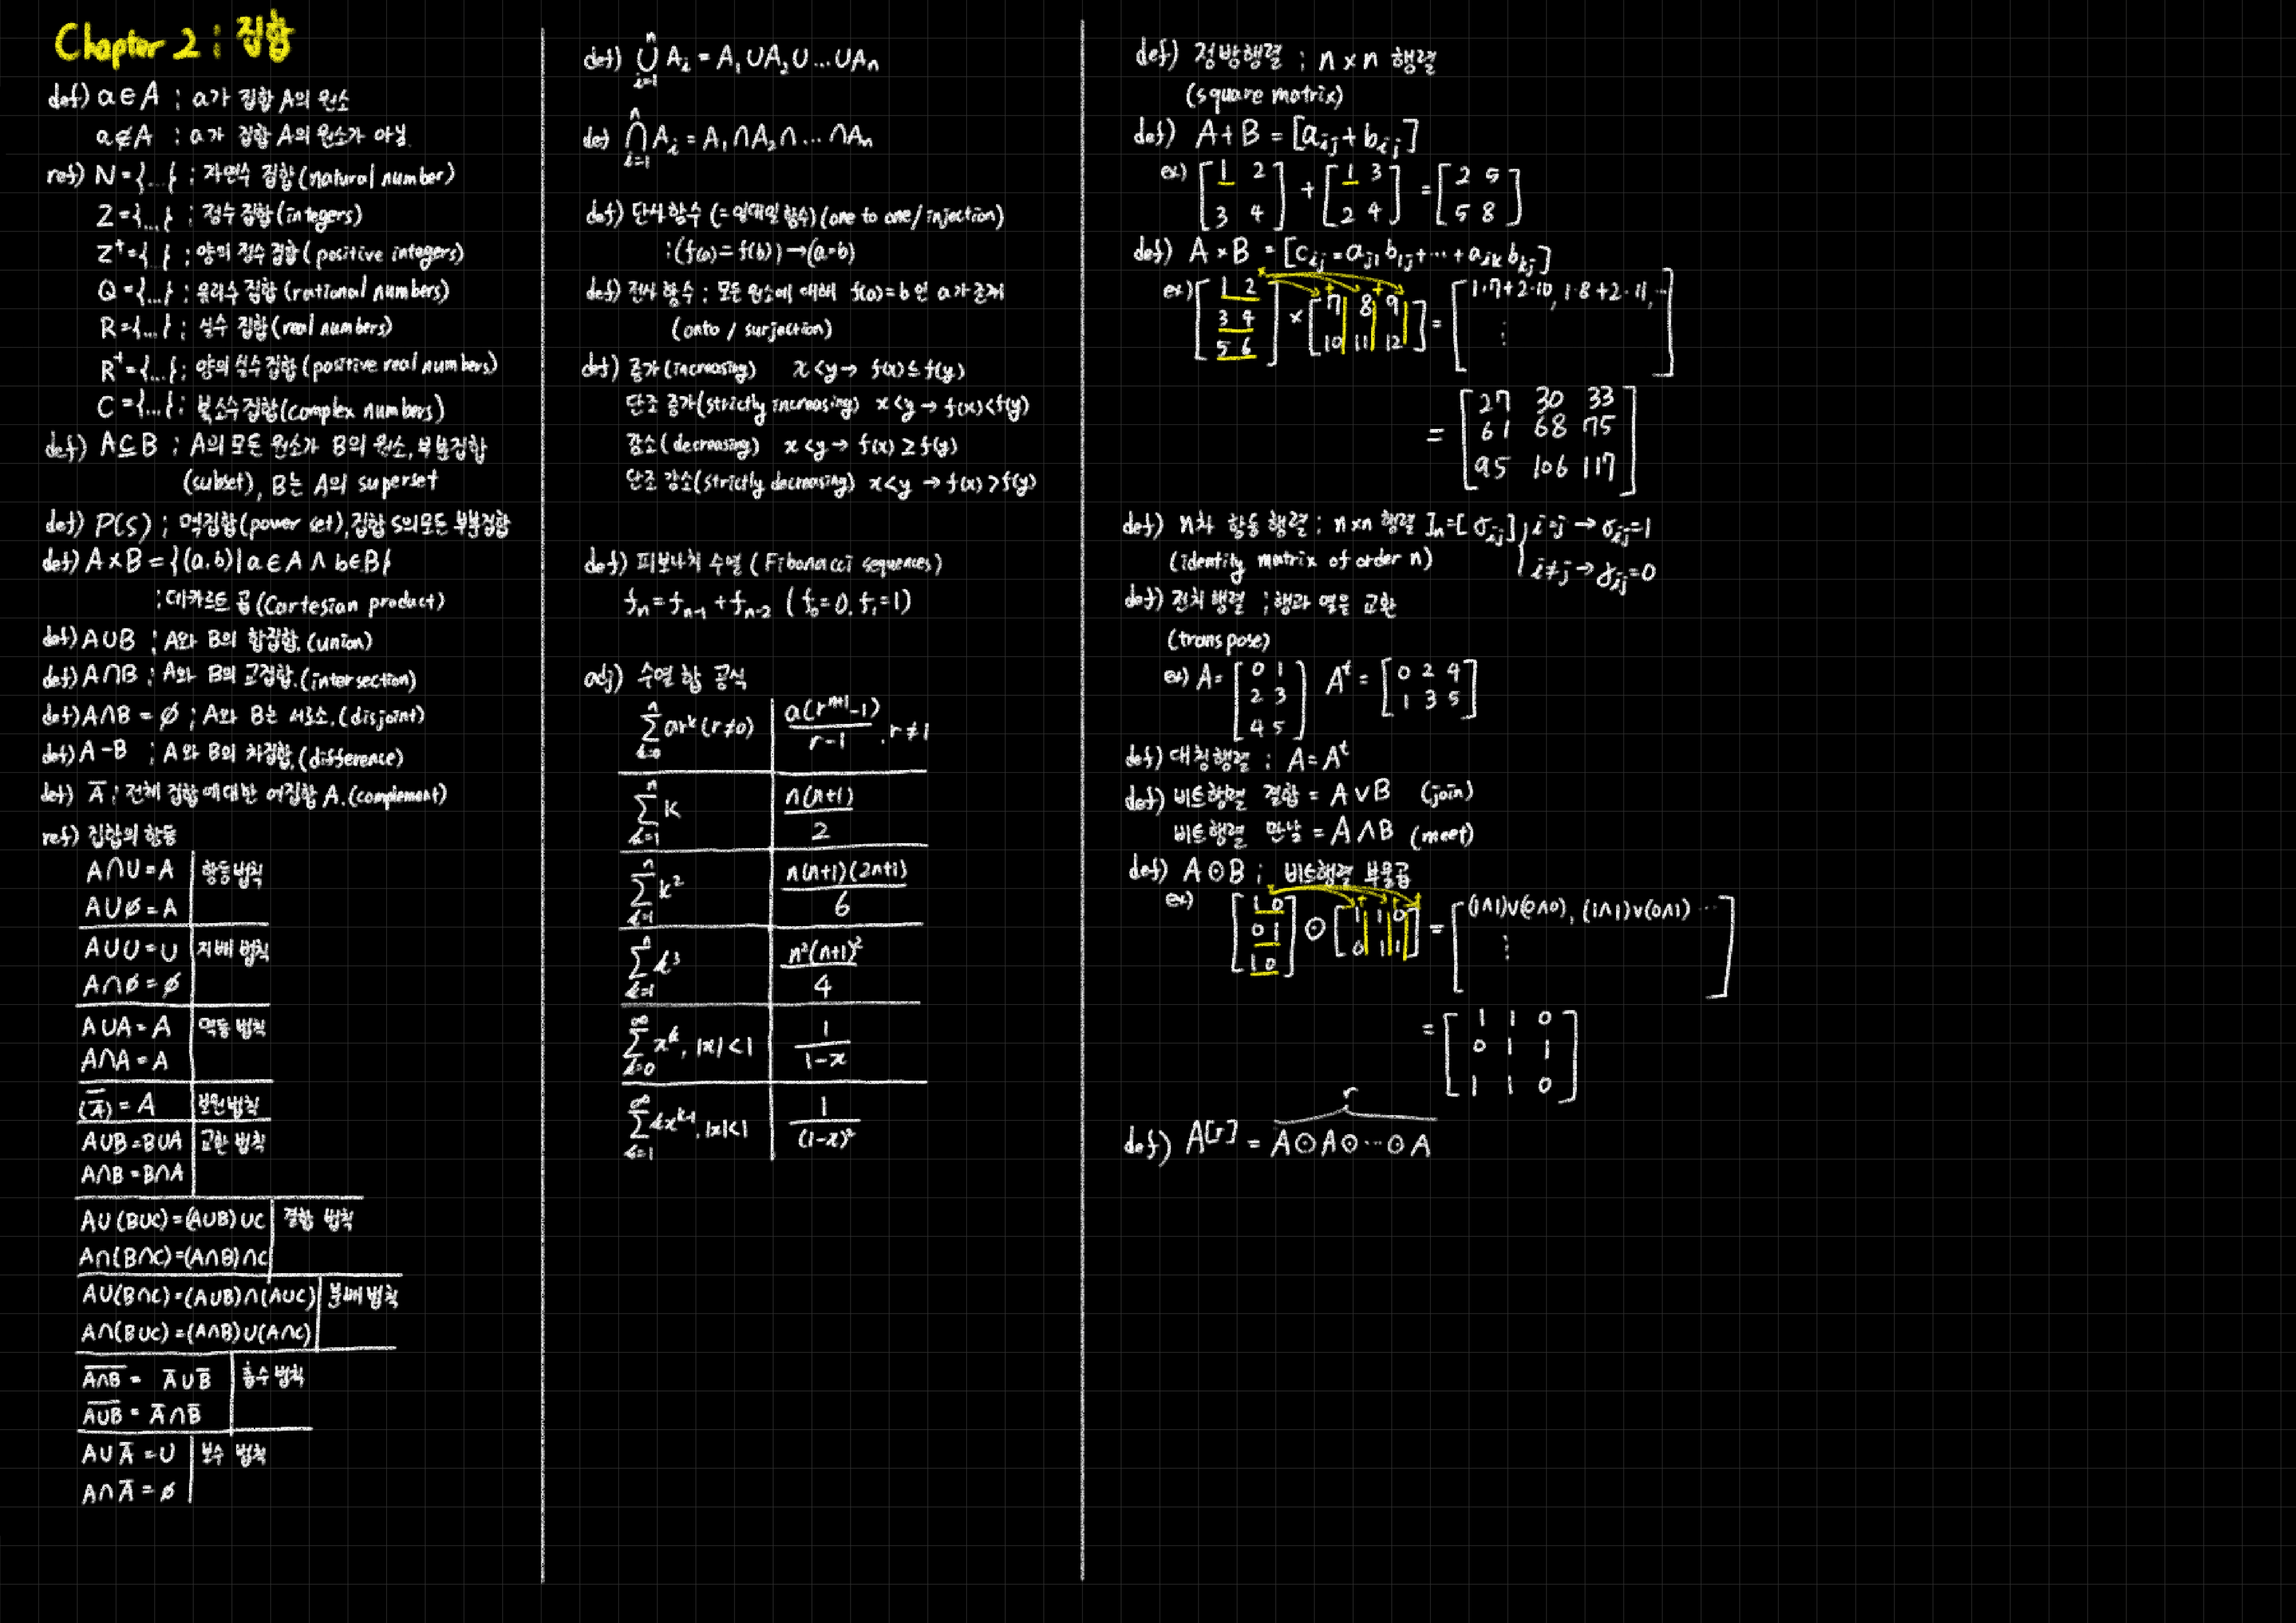 Chapter 2 ; 집합
def) a∈A ; a가 집합 A의 원소
a∉A ; a가 집합 A의 원소가 아님.
ref) N={...} ; 자연수 집합(natural number)
Z={...} ; 정수 집합(integers)
Z⁺={...} ; 양의 정수 집합(positive integers)
Q={...} ; 유리수 집합(rational numbers)
R={...} ; 실수 집합(real numbers)
R⁺={...} ; 양의 실수 집합(positive real numbers)
C={...} ; 복소수 집합(complex numbers)
def) A⊆B ; A의 모든 원소가 B의 원소, 부분집합
(subset), B는 A의 superset
def) P(S) ; 멱집합(power set), 집합 S의 모든 부분집합
def) A×B={(a,b)|a∈A∧b∈B}
; 데카르트 곱(Cartesian product)
def) A∪B ; A와 B의 합집합.(union)
def) A∩B ; A와 B의 교집합.(intersection)
def) A∩B=∅ ; A와 B는 서로소.(disjoint)
def) A-B ; A와 B의 차집합.(difference)
def) A̅ ; 전체 집합에 대한 여집합 A.(complement)
ref) 집합의 항등
A∩U=A 항등법칙
A∪∅=A
A∪U=U 지배 법칙
A∩∅=∅
A∪A=A 멱등 법칙
A∩A=A
(A̅)̅=A 보원법칙
A∪B=B∪A 교환 법칙
A∩B=B∩A
A∪(B∪C)=(A∪B)∪C 결합 법칙
A∩(B∩C)=(A∩B)∩C
A∪(B∩C)=(A∪B)∩(A∪C) 분배 법칙
A∩(B∪C)=(A∩B)∪(A∩C)
A̅∩̅B̅ = A̅∪B̅ 흡수 법칙
A̅∪̅B̅ = A̅∩B̅
A∪A̅=U 보수 법칙
A∩A̅=∅
def) ⋃ⁿᵢ₌₁ Aᵢ = A₁∪A₂∪...∪Aₙ
def) ⋂ⁿᵢ₌₁ Aᵢ = A₁∩A₂∩...∩Aₙ
def) 단사 함수(=일대일 함수)(one to one/injection)
:(f(a)=f(b))→(a=b)
def) 전사 함수 ; 모든 원소에 대해 f(a)=b인 a가 존재
(onto / surjection)
def) 증가(increasing) x<y→ f(x)≤f(y)
단조 증가(strictly increasing) x<y→ f(x)<f(y)
감소(decreasing) x<y→ f(x)≥f(y)
단조 감소(strictly decreasing) x<y → f(x)>f(y)
def) 피보나치 수열(Fibonacci sequences)
fₙ=fₙ₋₁+fₙ₋₂ (f₀=0, f₁=1)
adj) 수열 합 공식
∑ⁿₖ₌₀ arᵏ(r≠0) a(rⁿ⁺¹-1)/(r-1), r≠1
∑ⁿₖ₌₁ k n(n+1)/2
∑ⁿₖ₌₁ k² n(n+1)(2n+1)/6
∑ⁿₖ₌₁ k³ n²(n+1)²/4
∑^∞ₖ₌₀ xᵏ, |x|<1 1/(1-x)
∑^∞ₖ₌₁ kxᵏ⁻¹, |x|<1 1/(1-x)²
def) 정방행렬 ; n×n 행렬
(square matrix)
def) A+B=[aᵢⱼ+bᵢⱼ]
ex) [1 2 + [1 3 = [2 5
3 4] 2 4] 5 8]
def) A×B=[cᵢⱼ=aⱼ₁b₁ⱼ+...+aᵢₖbₖⱼ]
ex) [1 2 × [7 8 9 = [1·7+2·10, 1·8+2·11, ...
3 4 10 11 12] ⋮
5 6]
= [27 30 33
61 68 75
95 106 117]
def) n차 항등 행렬 ; n×n 행렬 Iₙ=[δᵢⱼ] i=j → δᵢⱼ=1
(identity matrix of order n) i≠j → δᵢⱼ=0
def) 전치 행렬 ; 행과 열을 교환
(transpose)
ex) A=[0 1 Aᵗ=[0 2 4
2 3 1 3 5]
4 5]
def) 대칭행렬 ; A=Aᵗ
def) 비트행렬 결합 = A∨B (join)
비트행렬 만남 = A∧B (meet)
def) A⊙B ; 비트행렬 부울곱
ex) [1 0 ⊙ [1 1 0 = [(1∧1)∨(0∧0), (1∧1)∨(0∧1) ...
0 1 0 1 1] ⋮
1 0]
= [1 1 0
0 1 1
1 1 0]
r
def) A[r] = A⊙A⊙...⊙A